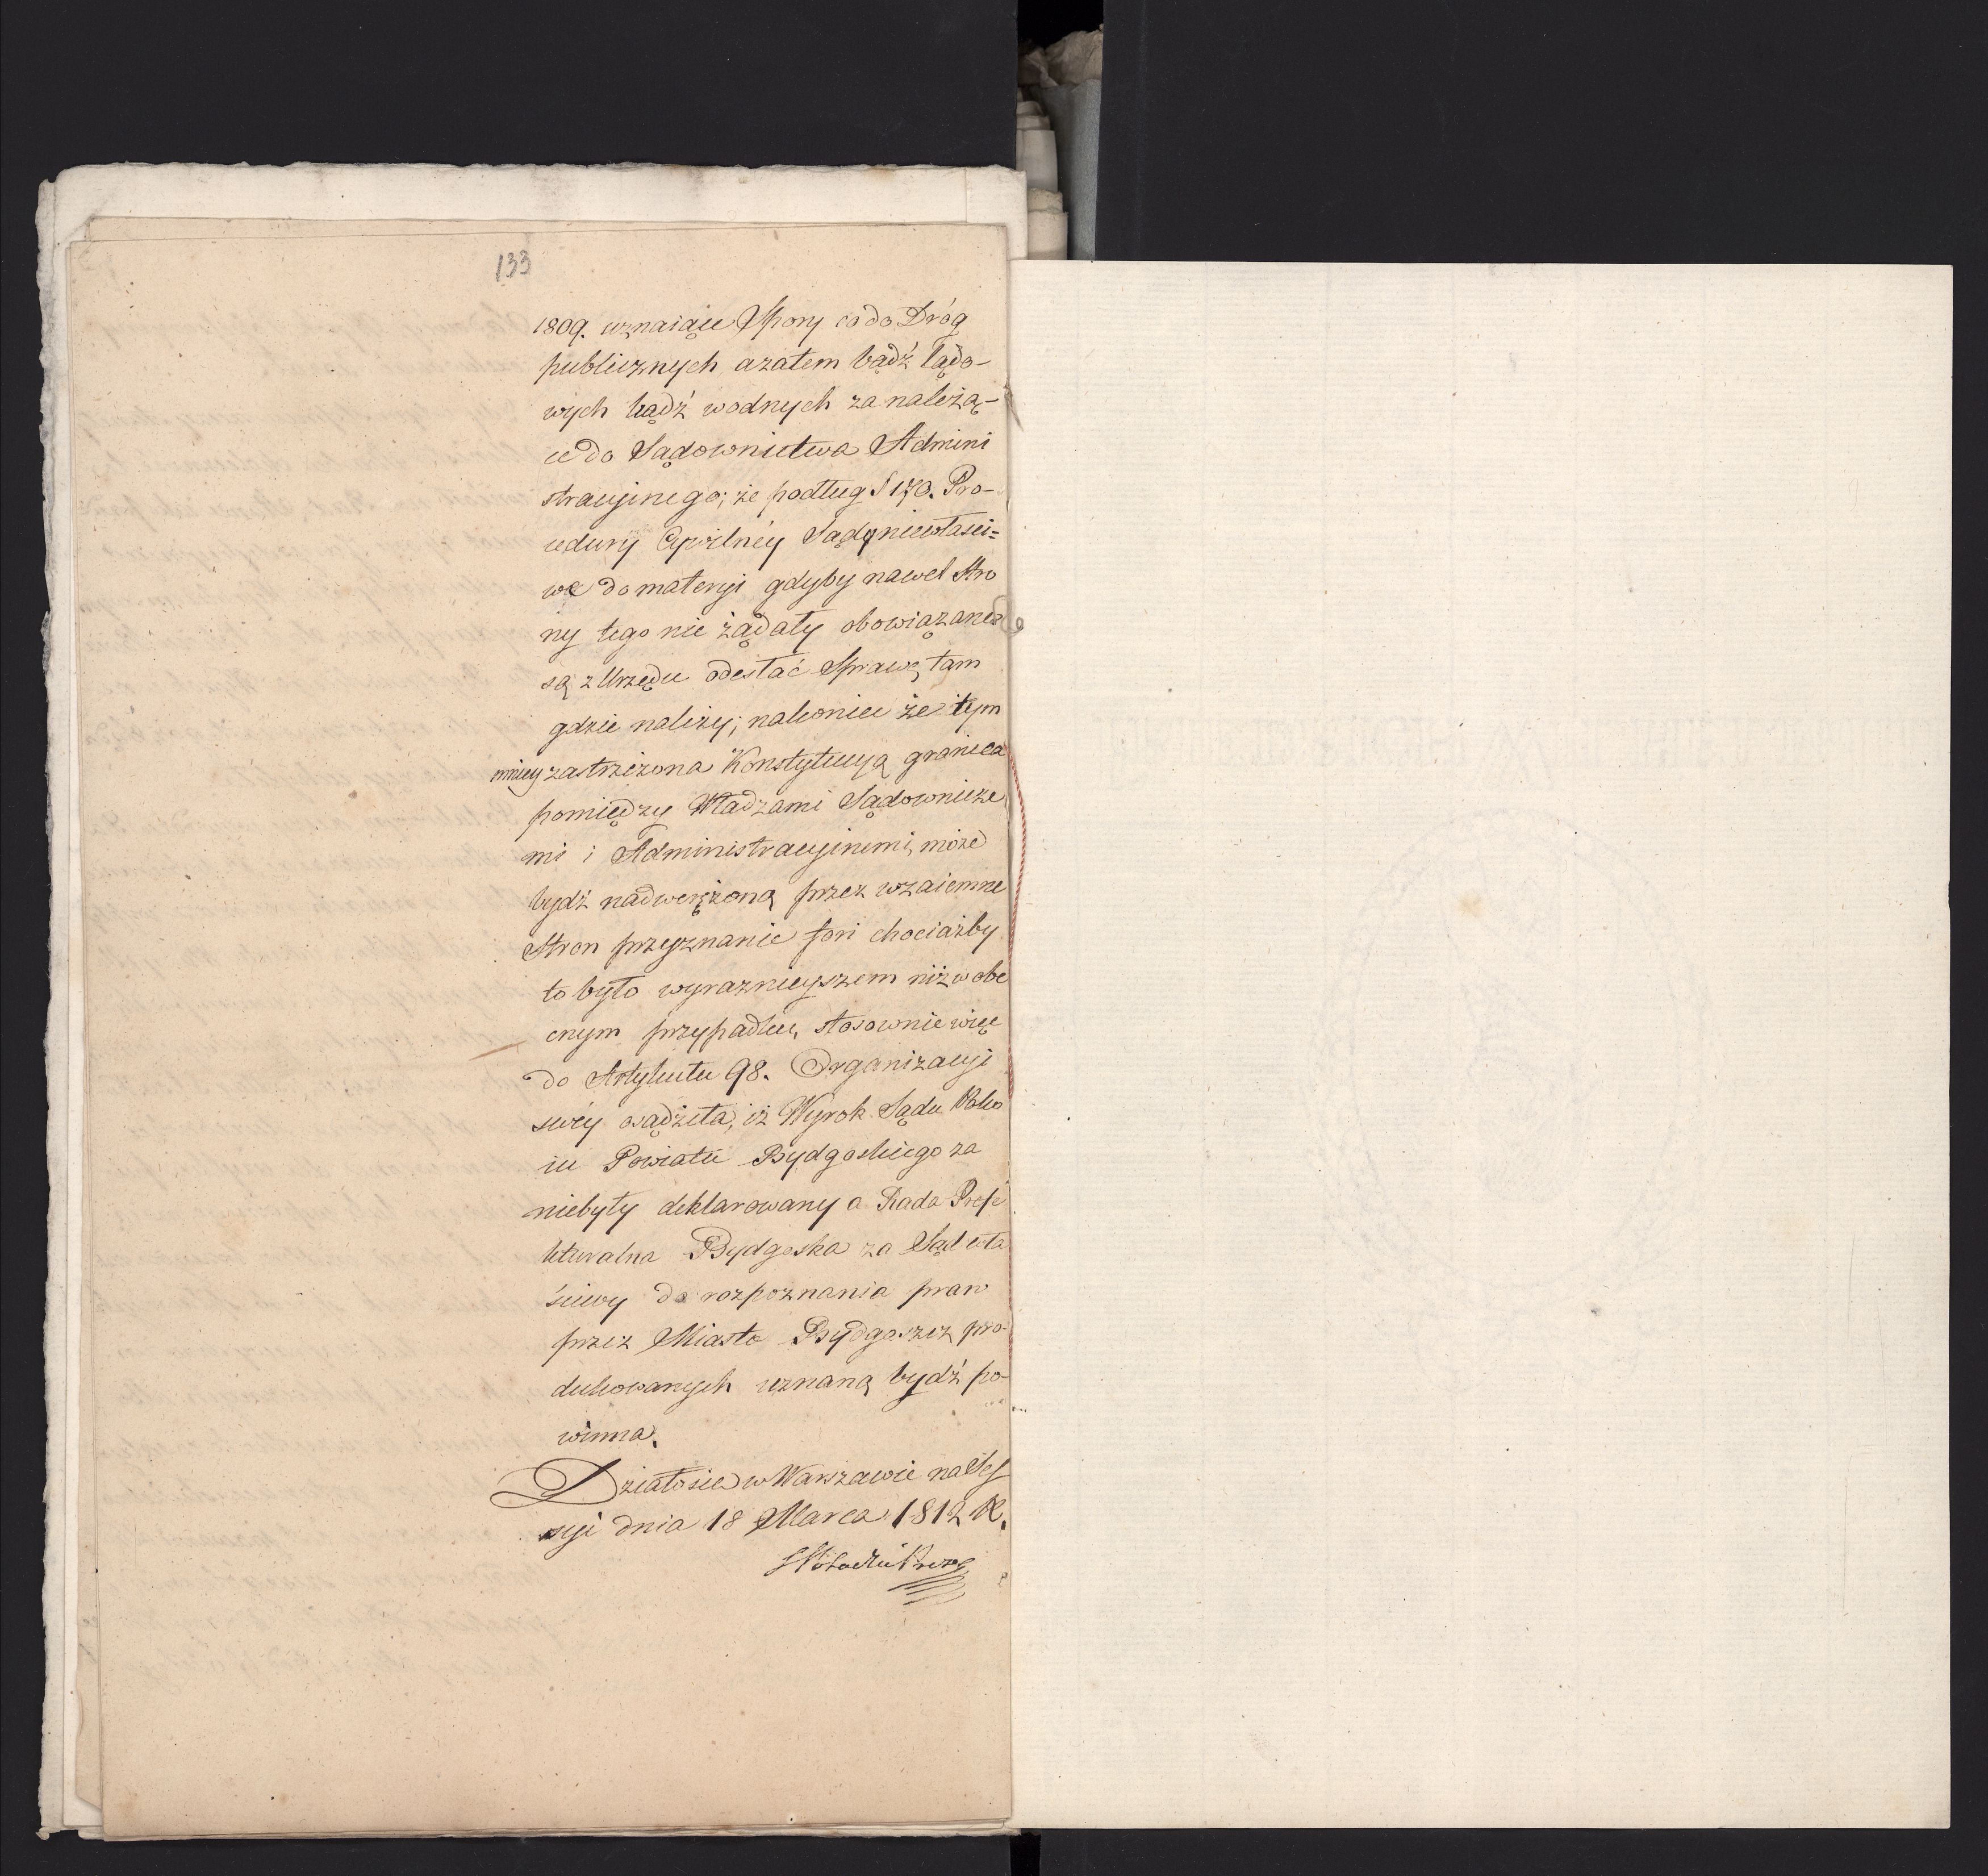 133
1809. uznaiące Spory co do Dróg
publicznych azatem bądź lądo-
wych bądź wodnych za należą-
ce do Sądownictwa Admini
stracyinego; że podług § 170. Pro-
cedury Cywilnéy Sądy niewłaści=
we do materyi gdyby nawet Stro
ny tego nie żądały obowiązane
są z Urzędu odesłać Sprawę tam
gdzie należy; nakoniec że tym
mniey zastrzeżona Konstytucyą granica
pomiędzy Władzami Sądownicze
mi i Administracyinemi, może
bydź nadwerężoną przez wzaiemne
Stron przyznanie fori chociażby
to było wyraznieyszem niż w obe
cnym przypadku, stosownie więc
do Artykułu 98. Organizacyi
swéy osądziła, iż Wyrok Sądu Poko
iu Powiatu Bydgoskiego za
niebyły deklarowany a Rada Prefe
kturalna Bydgoska za Sąd wła
ściwy do rozpoznania praw
przez Miasto Bydgoszcz pro-
dukowanych uznaną bydź po-
winna.
Działo sie w Warszawie na Ses
syi dnia 18 Marca 1812 R.